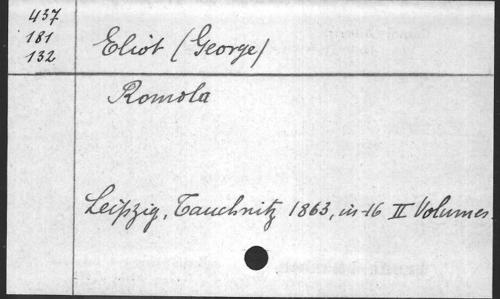 437
181
132
Eliot (George)
Romola
Leipzig, Tauchnitz 1863, in-16 II Volumes.